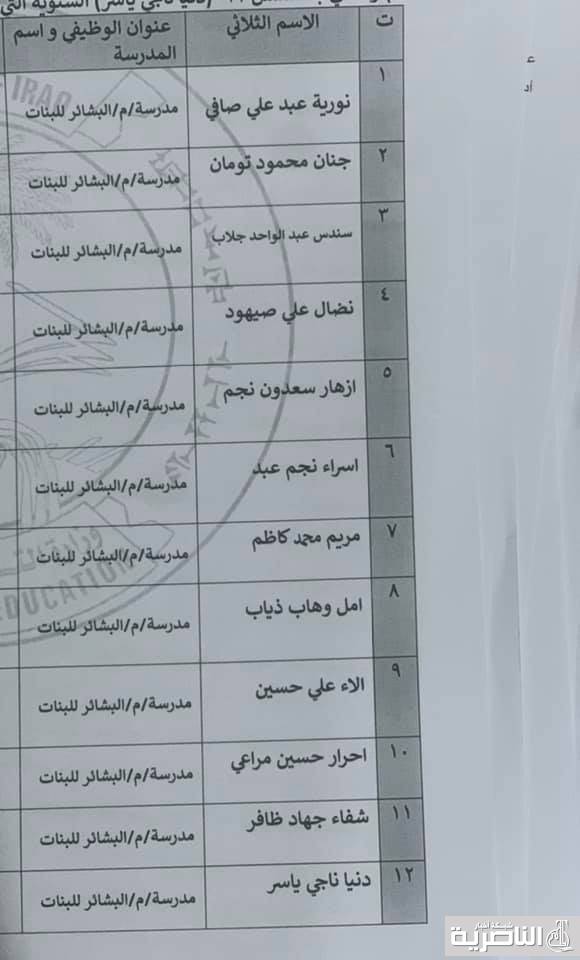 (دنيا ناجي ياسر) السنوية التي
ت الاسم الثلاثي عنوان الوظيفي و اسم المدرسة
١ نورية عبد علي صافي مدرسة/م/البشائر للبنات
٢ جنان محمود تومان مدرسة/م/البشائر للبنات
٣ سندس عبد الواحد جلاب مدرسة/م/البشائر للبنات
٤ نضال علي صيهود مدرسة/م/البشائر للبنات
٥ ازهار سعدون نجم مدرسة/م/البشائر للبنات
٦ اسراء نجم عبد مدرسة/م/البشائر للبنات
٧ مريم محمد كاظم مدرسة/م/البشائر للبنات
٨ امل وهاب ذياب مدرسة/م/البشائر للبنات
٩ الاء علي حسين مدرسة/م/البشائر للبنات
١٠ احرار حسين مراعي مدرسة/م/البشائر للبنات
١١ شفاء جهاد ظافر مدرسة/م/البشائر للبنات
١٢ دنيا ناجي ياسر مدرسة/م/البشائر للبنات
IRAQ
وزارة
EDUCATION
شبكة اخبار
الناصرية